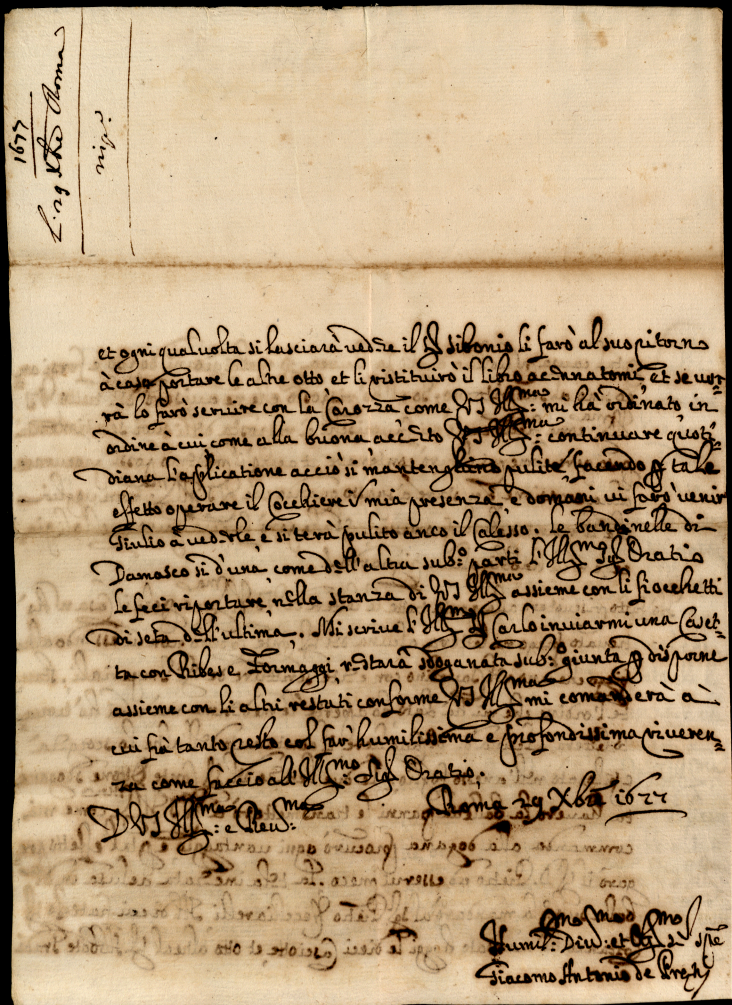 1677
L. 29 Xbre Roma
risp.
et ogni qual volta si lasciarà vedere il Sig. Sibonio li farò al suo ritorno
à casa portare le altre otto et li ristituirò il libro accennatomi, et se vor-
rà lo farò servire con la Carozza come VS Ill.ma mi hà ordinato, in
ordine à cui come alla buona accerto VS Ill.ma: continuare quoti-
diana l'applicatione acciò si mantenghino pulite, facendo p tale
effetto operare il Cocchiere in mia presenza, e domani vi farò venir
Giulio à vederle, e si terà pulito anco il Calesso. le bandinelle di
Damasco si d'una, come dell'altra sub.o partì l'Ill.mo Sig. Oratio
le feci riportare nella stanza di VS Ill.ma assieme con li fiocchetti
di seta dell'ultima. Mi scrive l'Ill.mo S. Carlo inviarmi una Caset-
ta con Ribes e Formaggi, restarà sdoganata sub.o giunta p disporne
assieme con li altri restati conforme VS Ill.ma mi comanderà à
cui frà tanto resto col far humilissima e profondissima riveren-
za come faccio all'Ill.mo: Sig. Oratio.
Roma 29 Xbre 1677
D VS Ill.ma: e Rev.ma:
Humil.mo: Div.mo: et Obl.mo Ser.re
Giacomo Antonio de